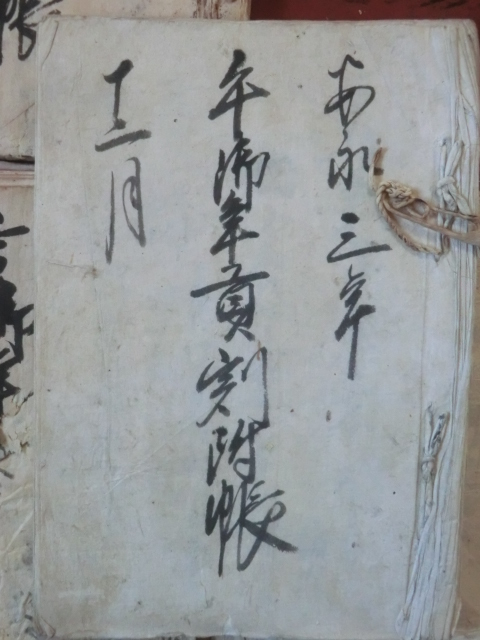 安永三年
午御年貢割附帳
十二月